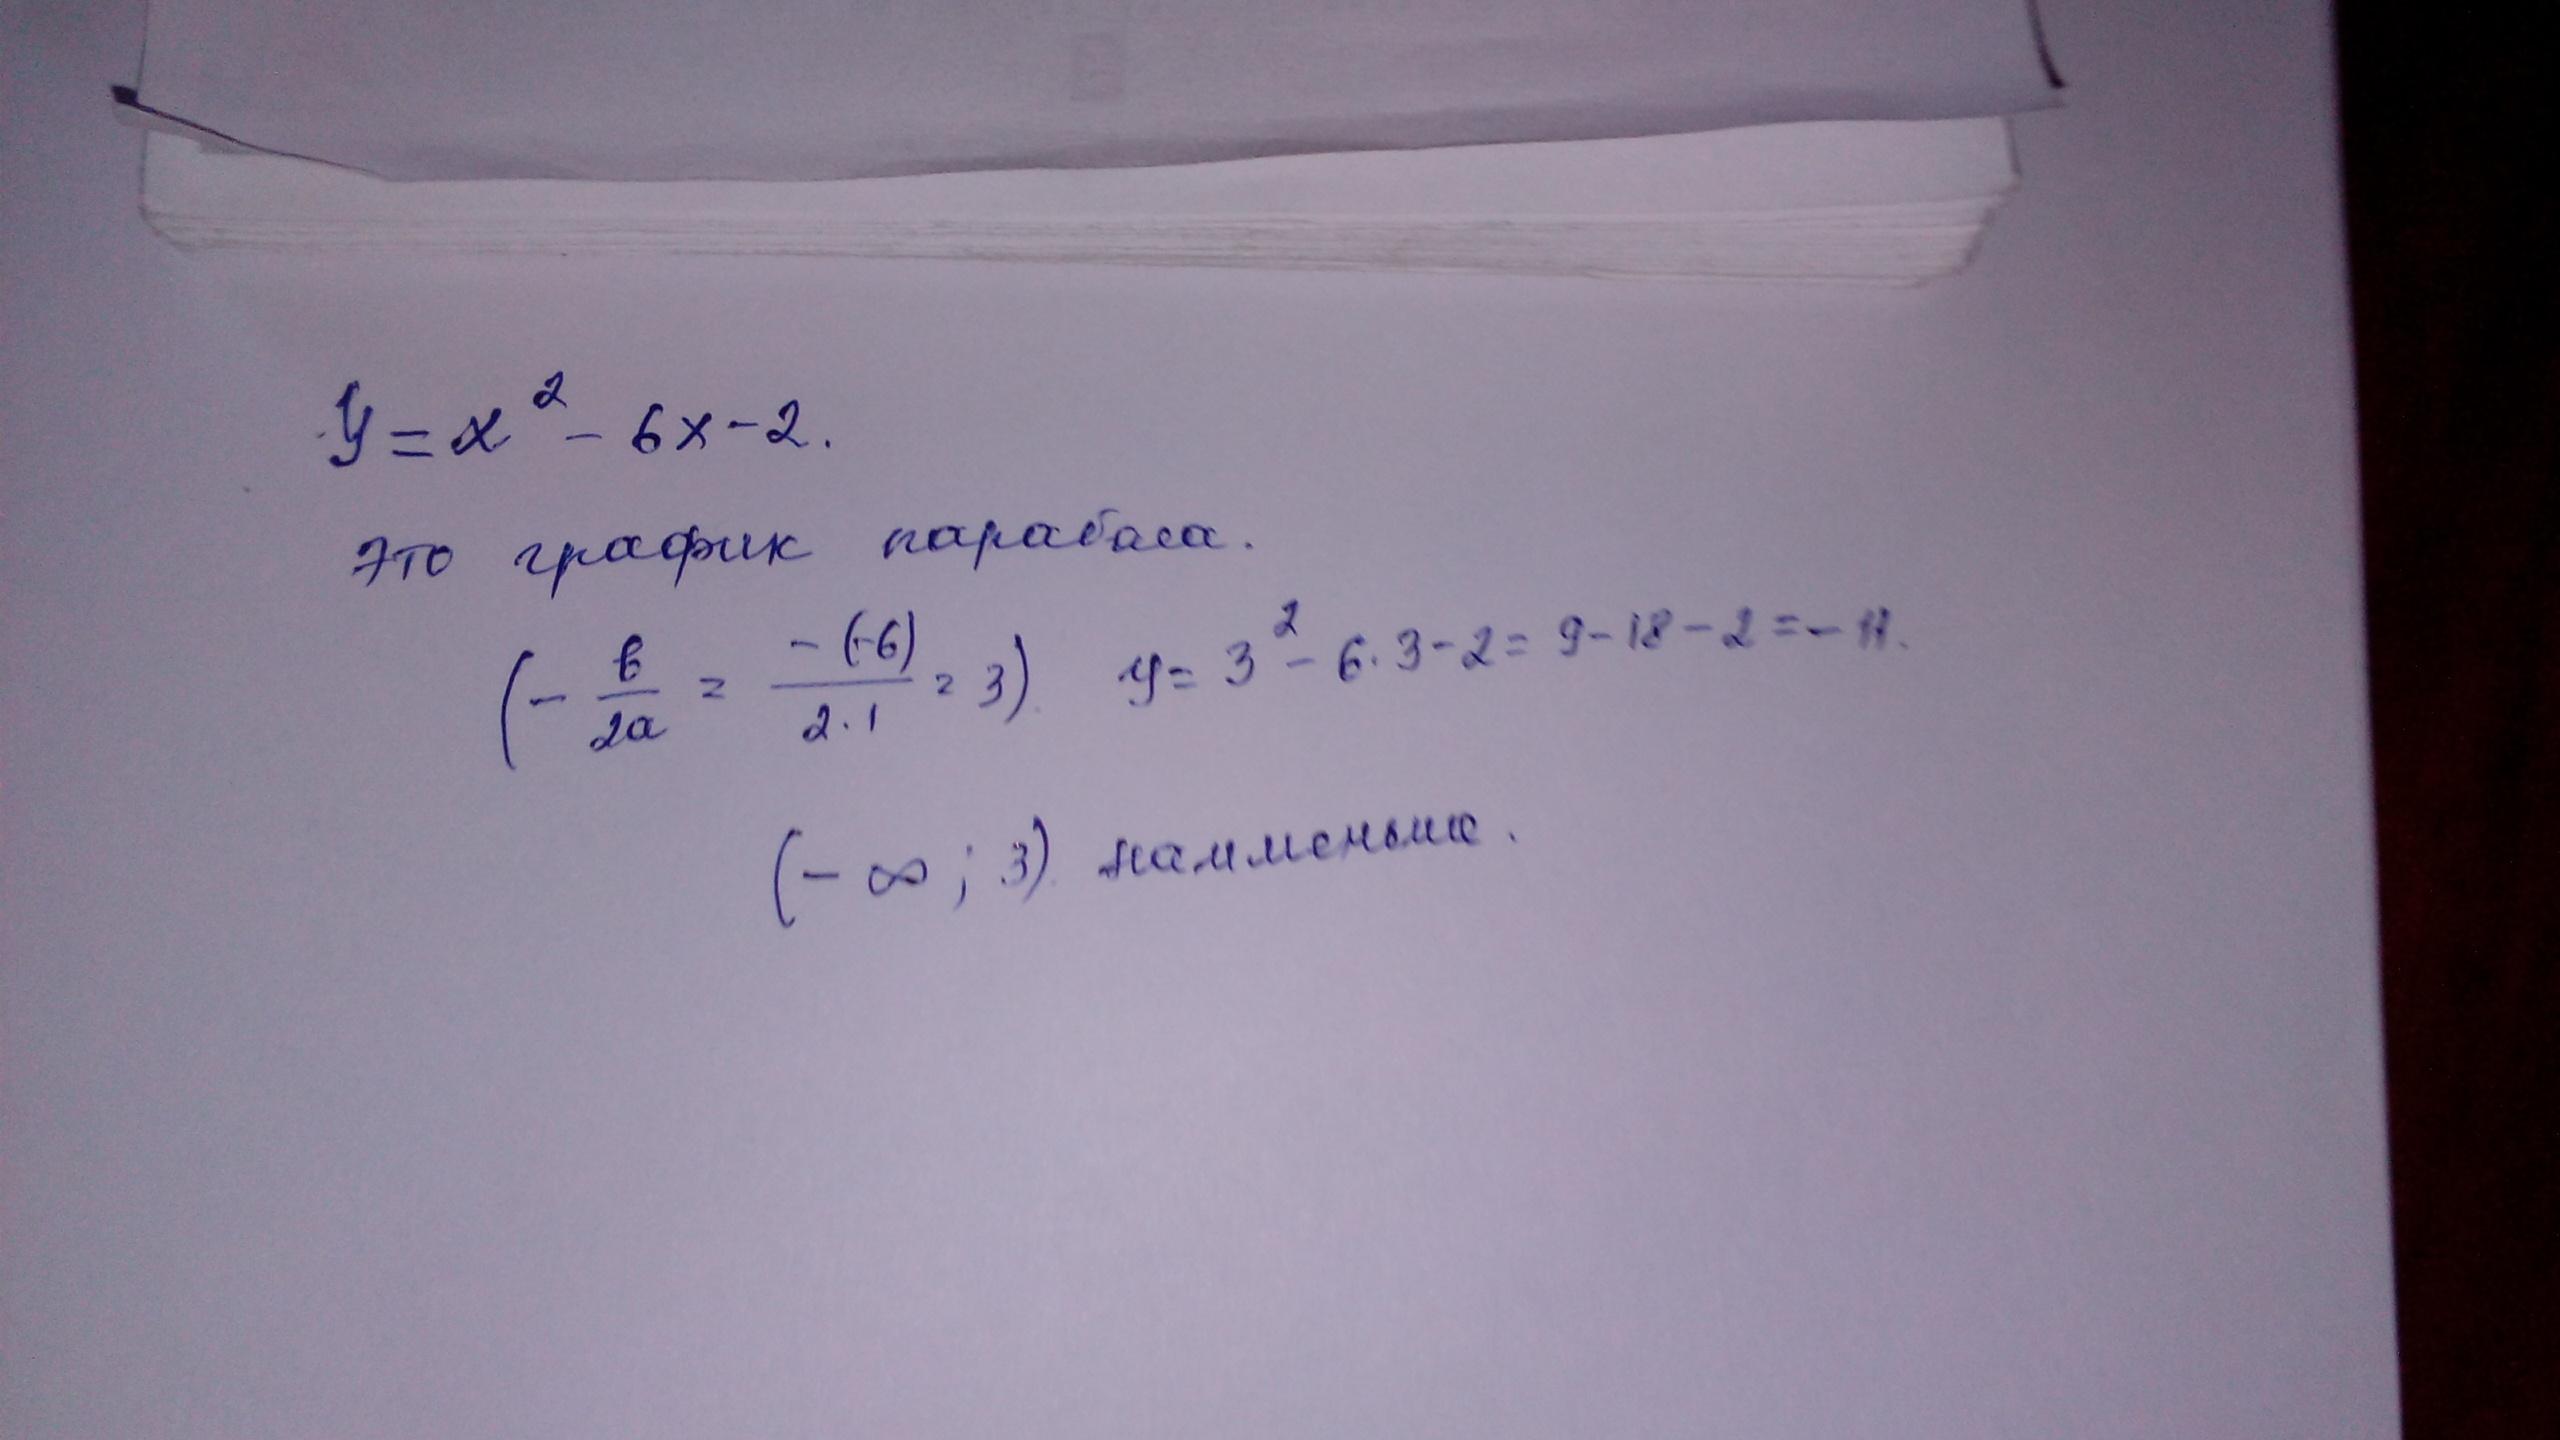 y = x² - 6x - 2.
это график парабола.
(- в/2a = -(-6)/2·1 = 3) y = 3² - 6·3 - 2 = 9 - 18 - 2 = - 11.
(- ∞ ; 3)